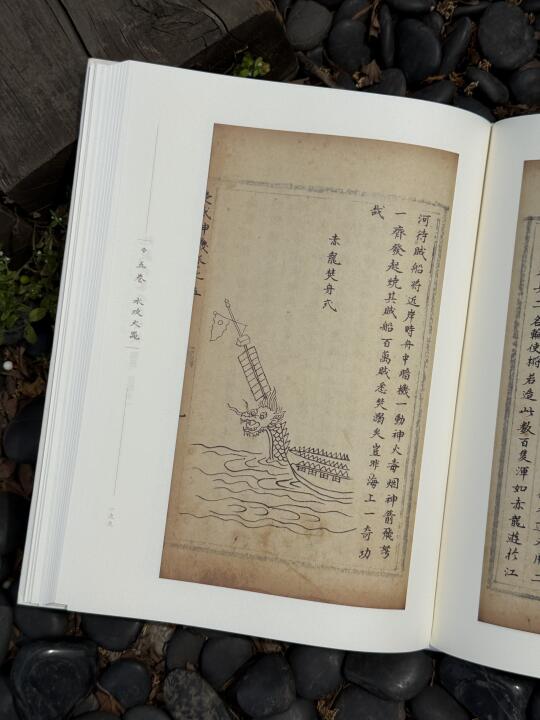 若造此數百隻渾如赤龍遊於江
河待賊船將近岸時舟中暗機一動神火毒烟神箭飛弩
一齊發起燒其賊船百萬賊悉焚溺矣豈非海上一奇功
哉
赤龍焚舟式
五卷 水攻火器